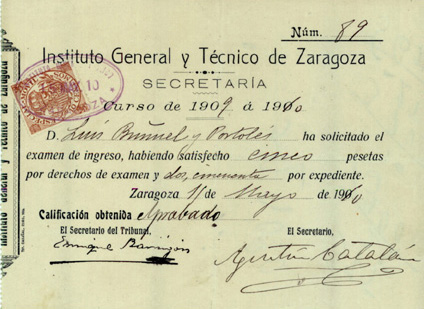 Núm. 89
Instituto General y Técnico de Zaragoza
SECRETARÍA
Curso de 1909 á 1910
D. Luis Buñuel y Portolés ha solicitado el
examen de ingreso, habiendo satisfecho cinco pesetas
por derechos de examen y dos, cincuenta por expediente.
Zaragoza 11 de Mayo de 1910
Calificación obtenida Aprobado
El Secretario del Tribunal, El Secretario,
Enrique Agustín Catalán
Instituto General y Técnico de Zaragoza